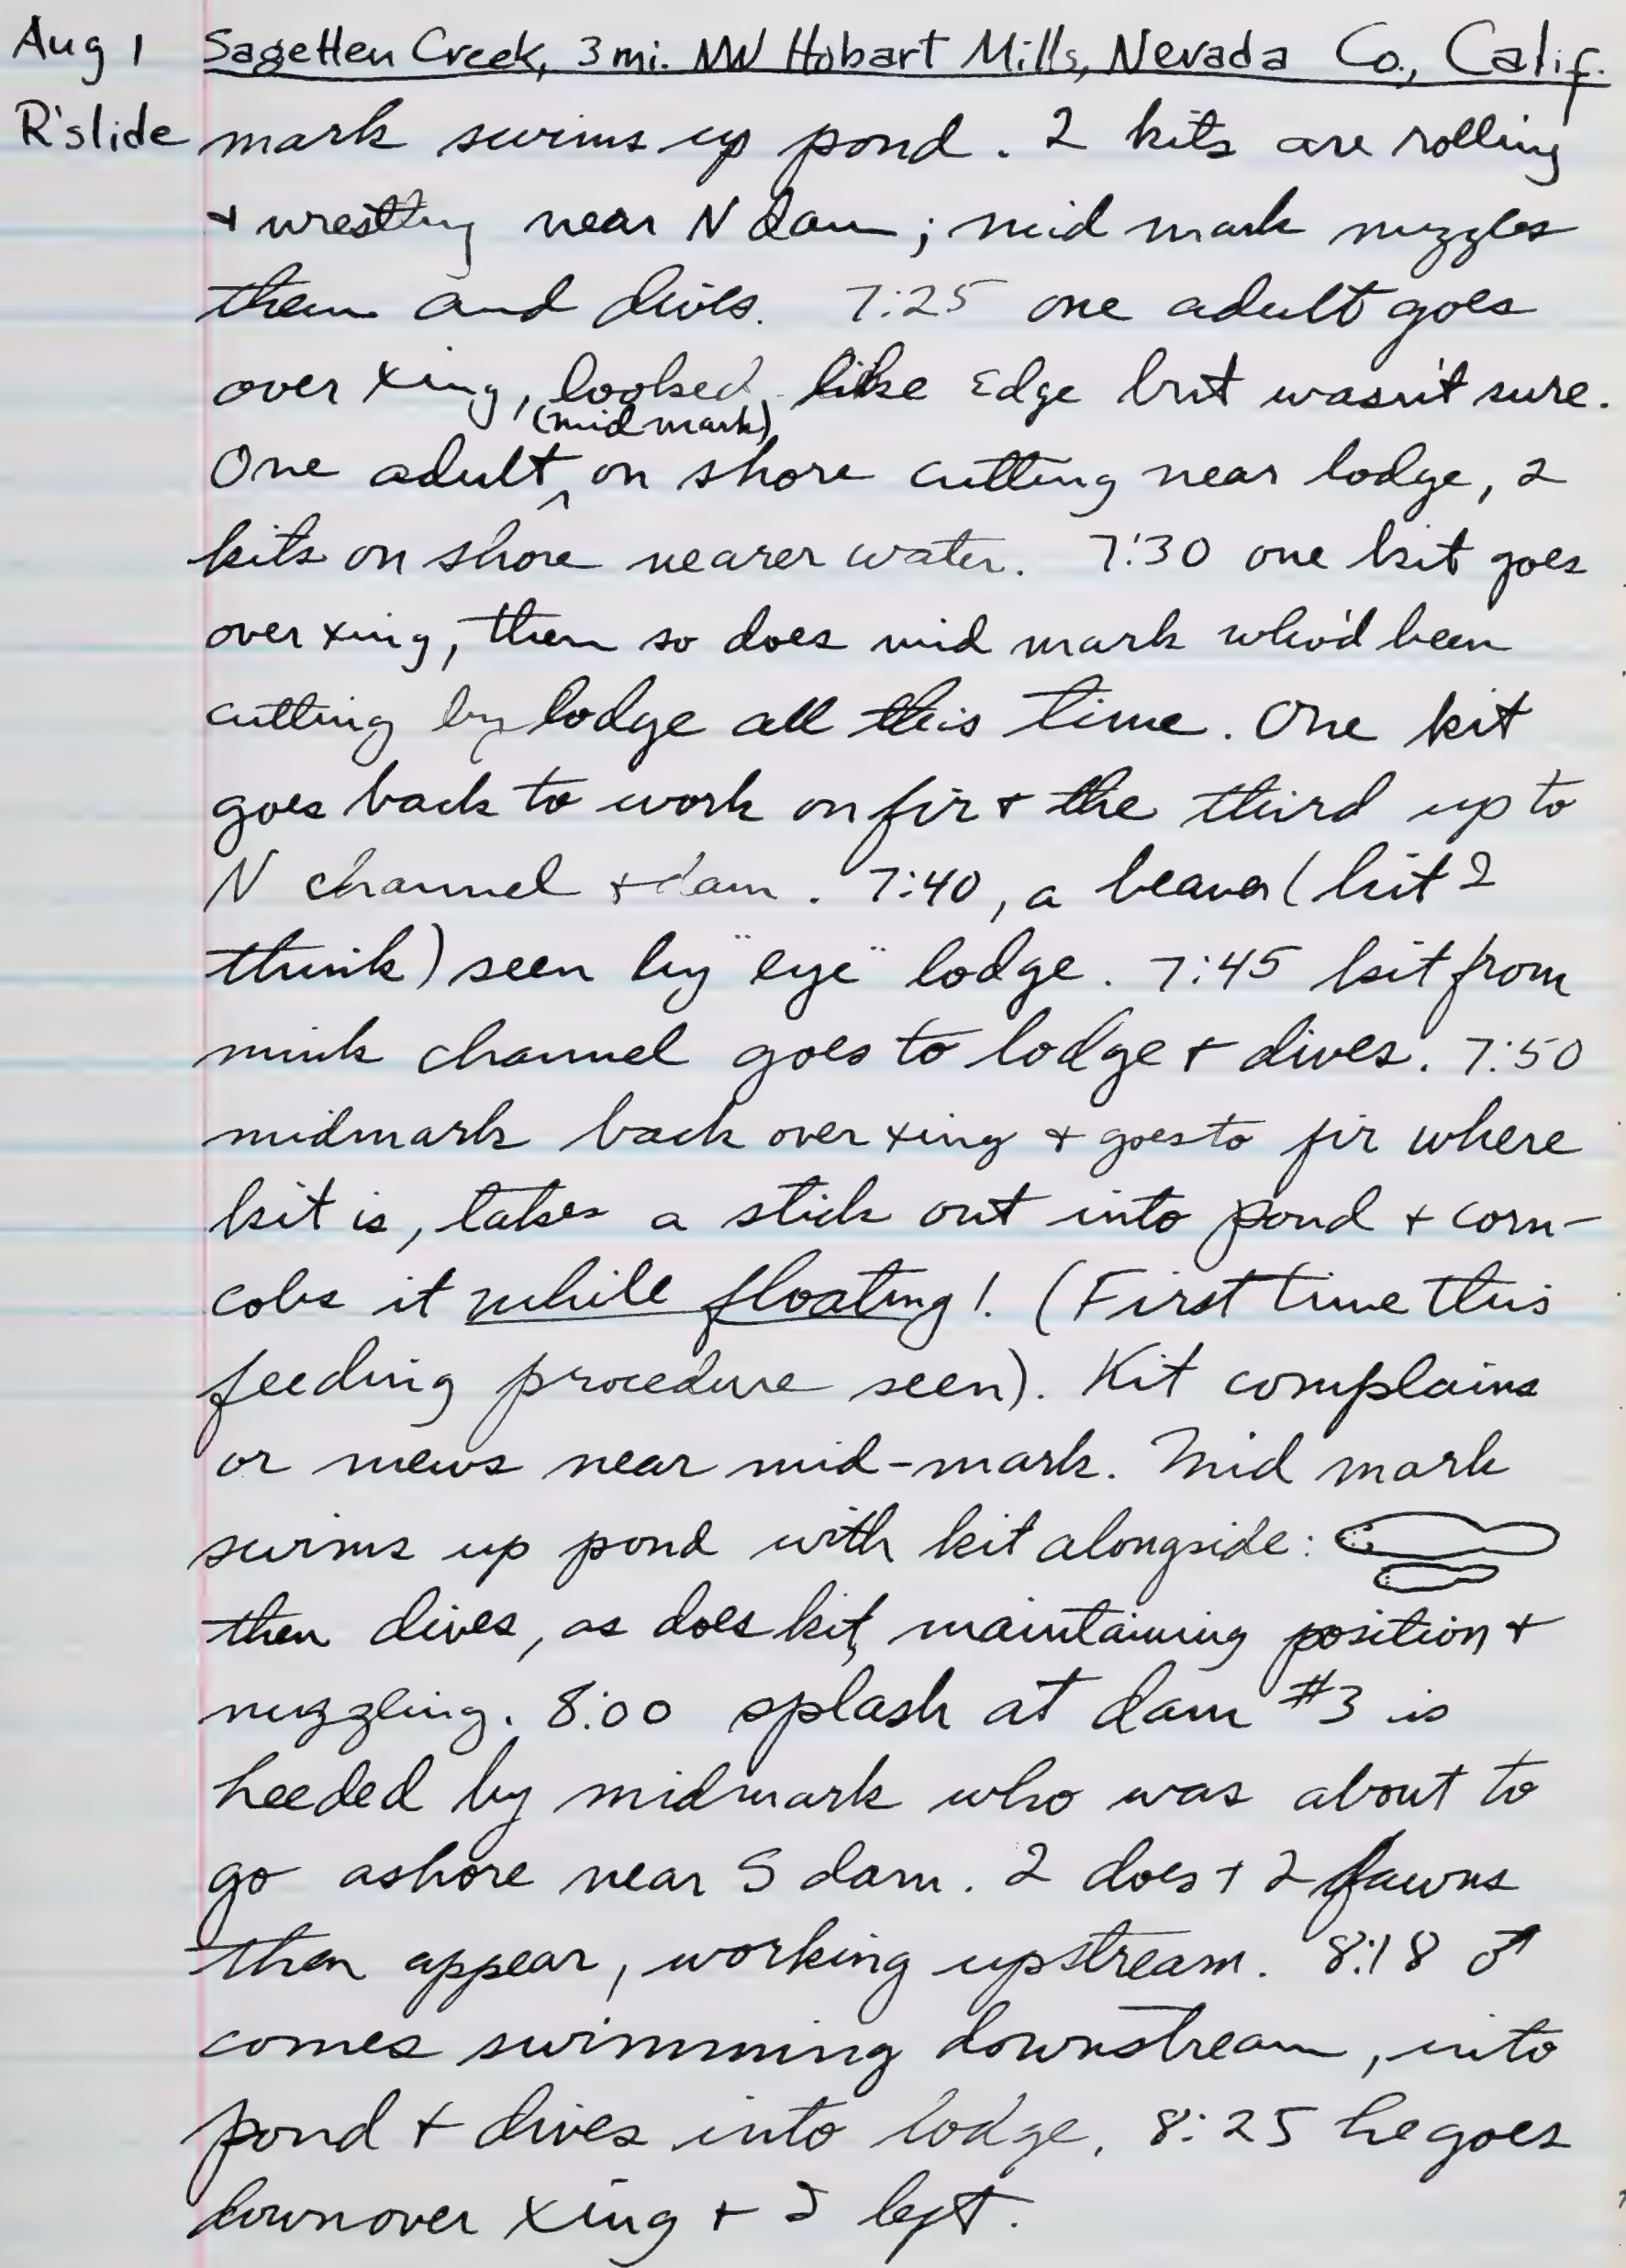 Aug 1 Sagehen Creek, 3 mi. NW Hobart Mills, Nevada Co., Calif.
R'slide mark swims up pond. 2 kits are rolling
+ wrestling near N dam; mid mark nuzzles
them and dives. 7:25 one adult goes
over xing, looked like Edge but wasn't sure.
(mid mark)
One adult ^ on shore cutting near lodge, 2
kits on shore nearer water. 7:30 one kit goes
over xing, then so does mid mark who'd been
cutting by lodge all this time. One kit
goes back to work on fir + the third up to
N channel + dam. 7:40, a beaver (kit I
think) seen by "eye" lodge. 7:45 kit from
mink channel goes to lodge + dives. 7:50
midmark back over xing + goes to fir where
kit is, takes a stick out into pond + corn-
cobs it while floating! (First time this
feeding procedure seen). Kit complains
or mews near mid-mark. Mid mark
swims up pond with kit alongside:
then dives, as does kit, maintaining position +
nuzzling. 8:00 splash at dam #3 is
heeded by midmark who was about to
go ashore near S dam. 2 does + 2 fawns
then appear, working upstream. 8:18 ♂
comes swimming downstream, into
pond + dives into lodge. 8:25 he goes
down over xing + I left.